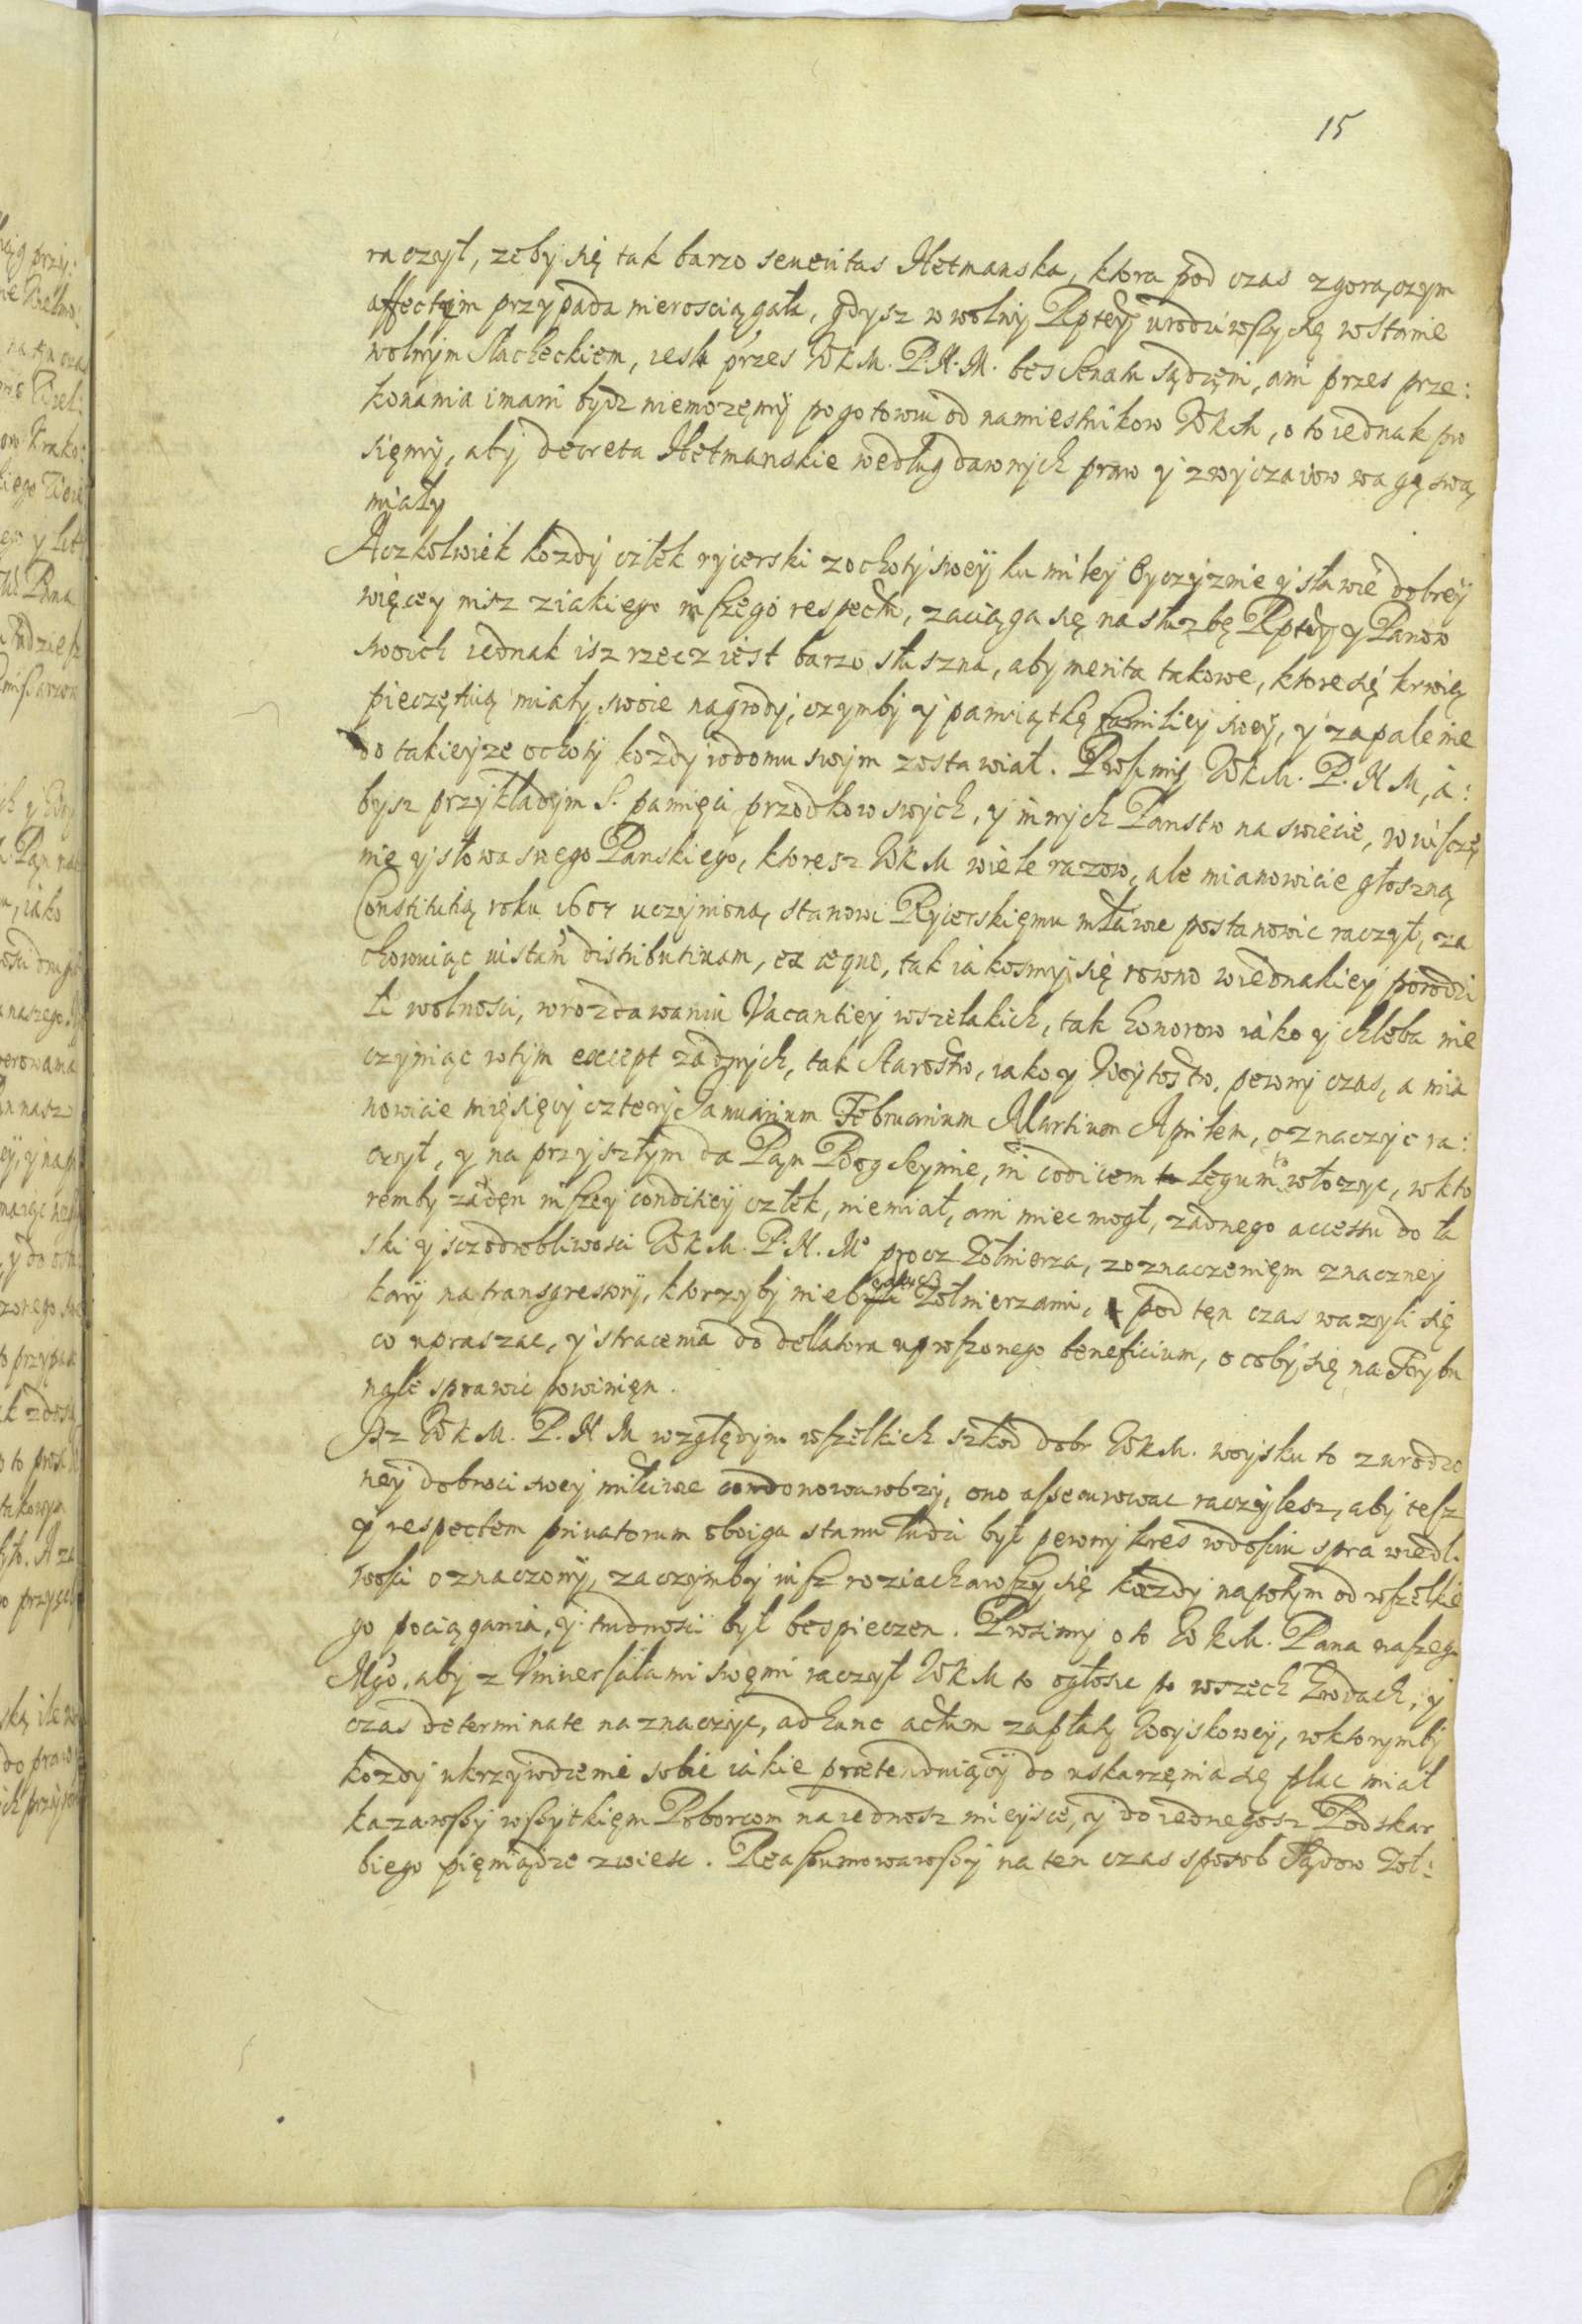 15
raczył, zeby się tak barzo seueritas Hetmanska, ktora pod czas zgorączym
affectęm przypada nierosciągała, gdysz w wolny Rptey urodziwszy się wstanie
wolnym slacheckiem, iesli przes WKM. P.N.M. bes senatu sądzęni, ani przes prze:
konania imani bydz niemozęmy pogotowiu od namiestnikow WKM, o to iednak pro
sięmy, aby decreta Hetmanskie według dawnych praw y zwyczaiow wagę swą
miały
Aczkolwiek kozdy człek rycerski zochoty swey ku miley Oyczyznie y sławie dobrey
więcey nisz ziakiego inszego respectu, zaciąga się na sluzbę Rptey y Panow
swoich iednak isz rzecz iest barzo słuszna, aby merita takowe, ktore się krwią
pieczętuią miały swoie nagrody, czymby y pamiątkę familiey swey, y zapalenie
do takieyze ochoty kozdy wdomu swym zostawiał. Prosimy WKM. P.N.M, a:
bysz przykladym S. pamięci przodkow swych, y innych Panstw na swiecie, w uiscze
nie y słowa swego Panskiego, ktoresz WKM wiele razow, ale mianowicie głoszną
Constitutią roku 1607 uczynioną, stanowi Rycerskięmu mławie postanowic raczył, za
chowuiąc iustam distributiuam, ex aequo, tak iakosmy się rowno wiednakiey porodzi
li wolnosci, wrozdawaniu Vacantiey wszelakich, tak honorow iako y chleba nie
czyniąc wtym except zadnych, tak starostw, iako y Woytostw, pewny czas, a mia
nowicie mięsięcy cztery Januarium Februarium Martium Aprilem, oznaczyc ra:
czył, y na przyszłym da Pan Bog Seymie, in codicem legum to włozyc, wkto
remby zadęn inszey conditiey człek, niemiał, ani miec mogł, zadnego accessu do ła
ski y sczodrobliwosci WKM. P.N.Mo procz Zołnierza, zoznaczeniem znaczney
kary na transgressory, ktorzyby niebędąc Zołnierzami, pod tęn czas wazyli się
co upraszac, y stracenia do dellatora uproszonego beneficium, o coby się na Trybu
nale sprawic powinięn.
Isz WKM. P.N.M względym wszelkich szkod dobr WKM. woysku to zurodzo
ney dobroci swey miłciwie condonowawszy, ono assecurowac raczylesz, aby tesz
y respectem priuatorum oboiga stanu ludzi był pewny kres wdosciu sprawiedl.
wosci oznaczony, zaczymby iusz roziachawszy się kozdy napotym od wszelkie
go pociągania, y trudnosci był bespieczen. Prosimy o to WKM. Pana naszeg
Mgo, aby z Vniuersałami swęmi raczył WKM to ogłosic po wszech Grodach, y
czas determinate naznaczyc, ad hunc actum zapłaty Woyskowey, wktorymby
kozdy ukrzywdzenie sobie iakie praetenduiący do uskarzęnia się plac miał
kazawszy wszytkięm Poborcom na iednosz mieysce, y do iednegosz Podskar
biego pięniądze zwiesc. Reassumowawszy na ten czas sposob Sądow Zoł: